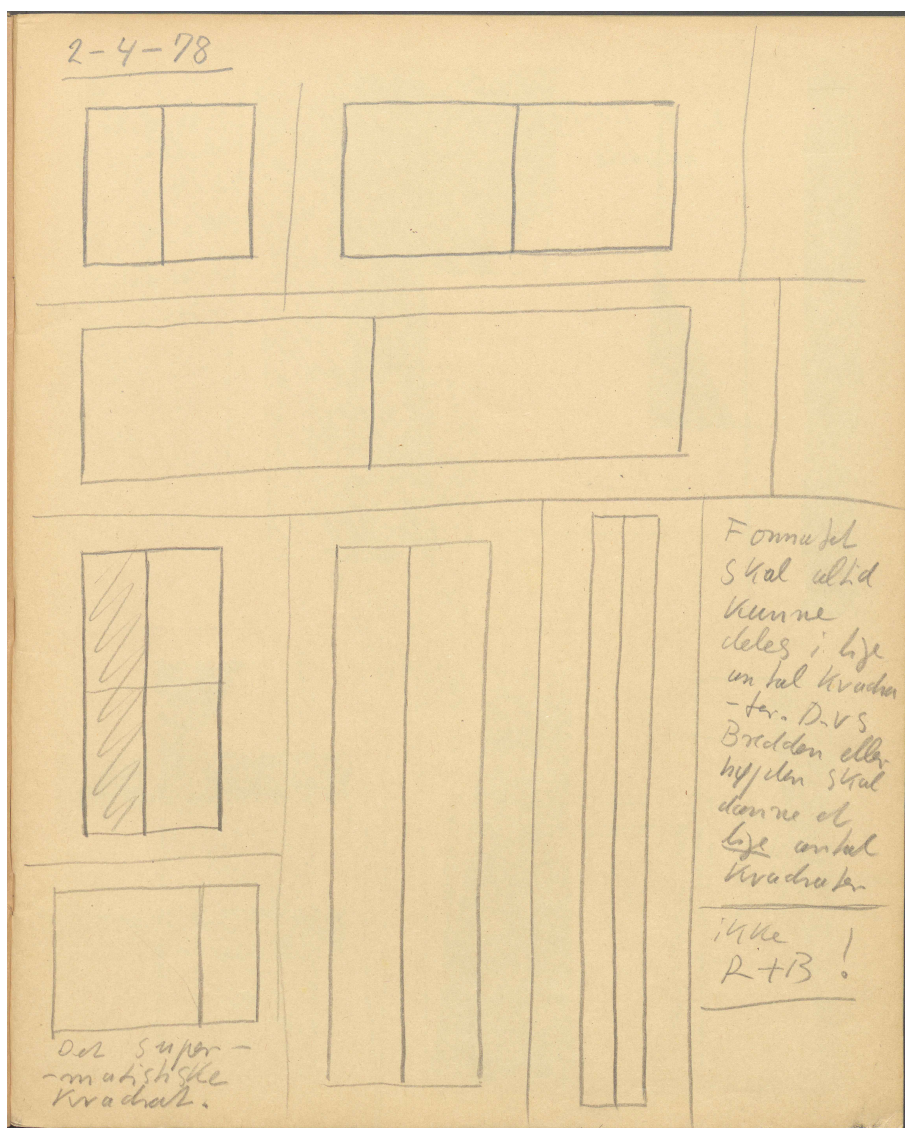 2-4-78
Formatet
skal altid
kunne
deles i lige
antal kvadra
-ter. D.v.s
Bredden eller
højden skal
danne et
lige antal
kvadrater
ikke
R+B!
Det super-
-matistiske
kvadrat.